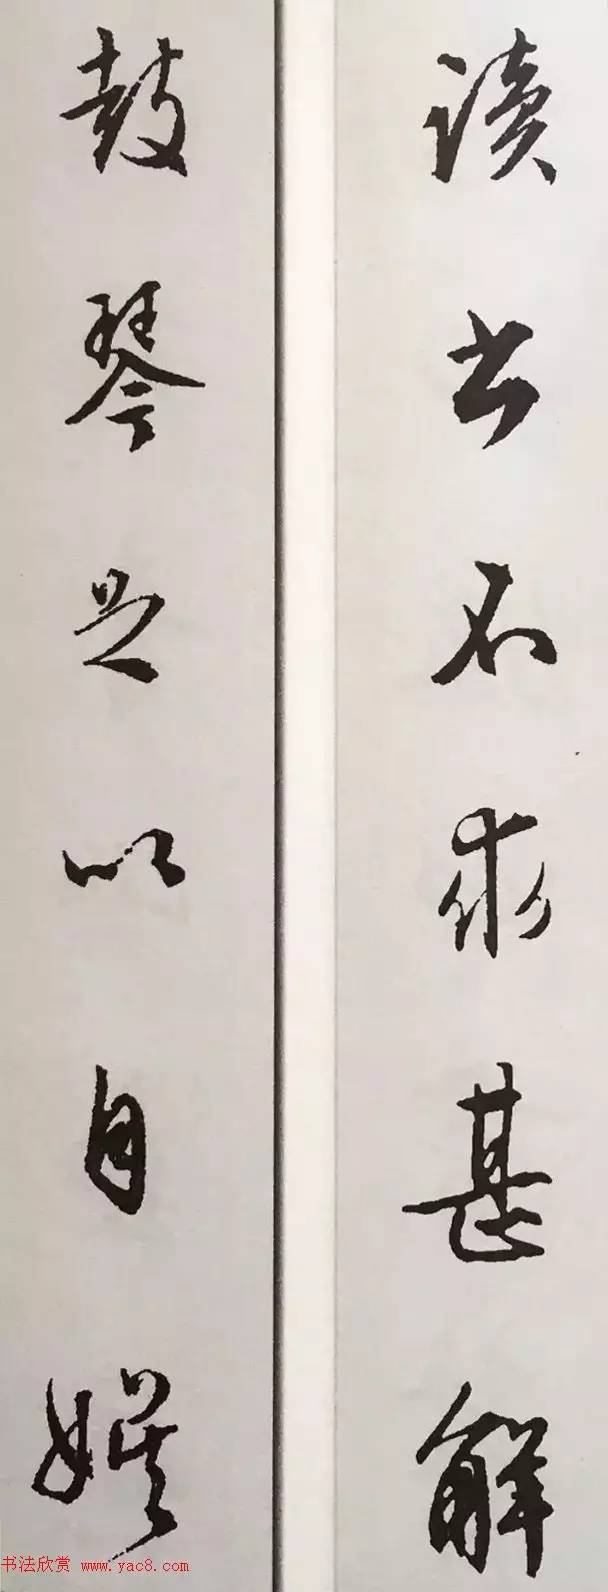 讀书不求甚解
鼓琴足以自娱
书法欣赏 www.yac8.com